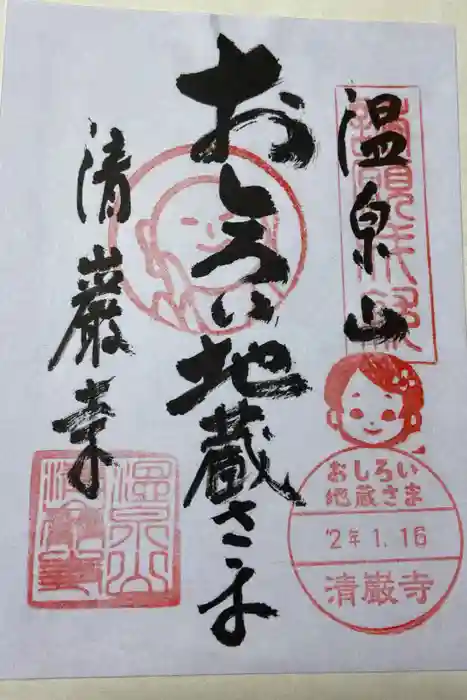 温泉山
おしろい地蔵さま
清巌寺
おしろい
地蔵さま
'2年1.16
清巌寺